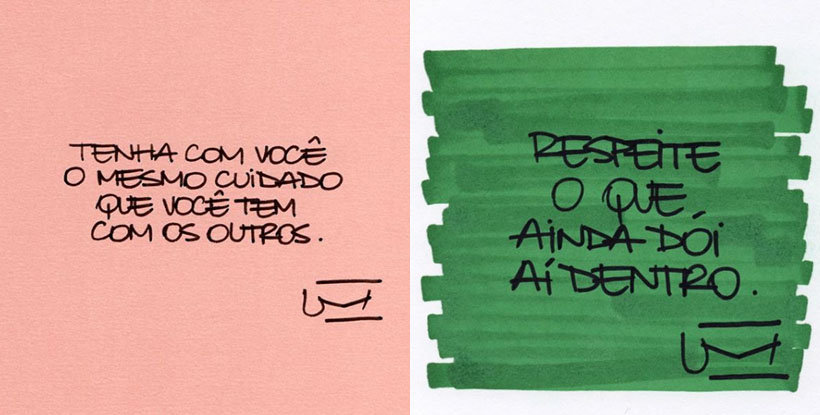 TENHA COM VOCÊ
O MESMO CUIDADO
QUE VOCÊ TEM
COM OS OUTROS.
RESPEITE
O QUE
AINDA DÓI
AÍ DENTRO.